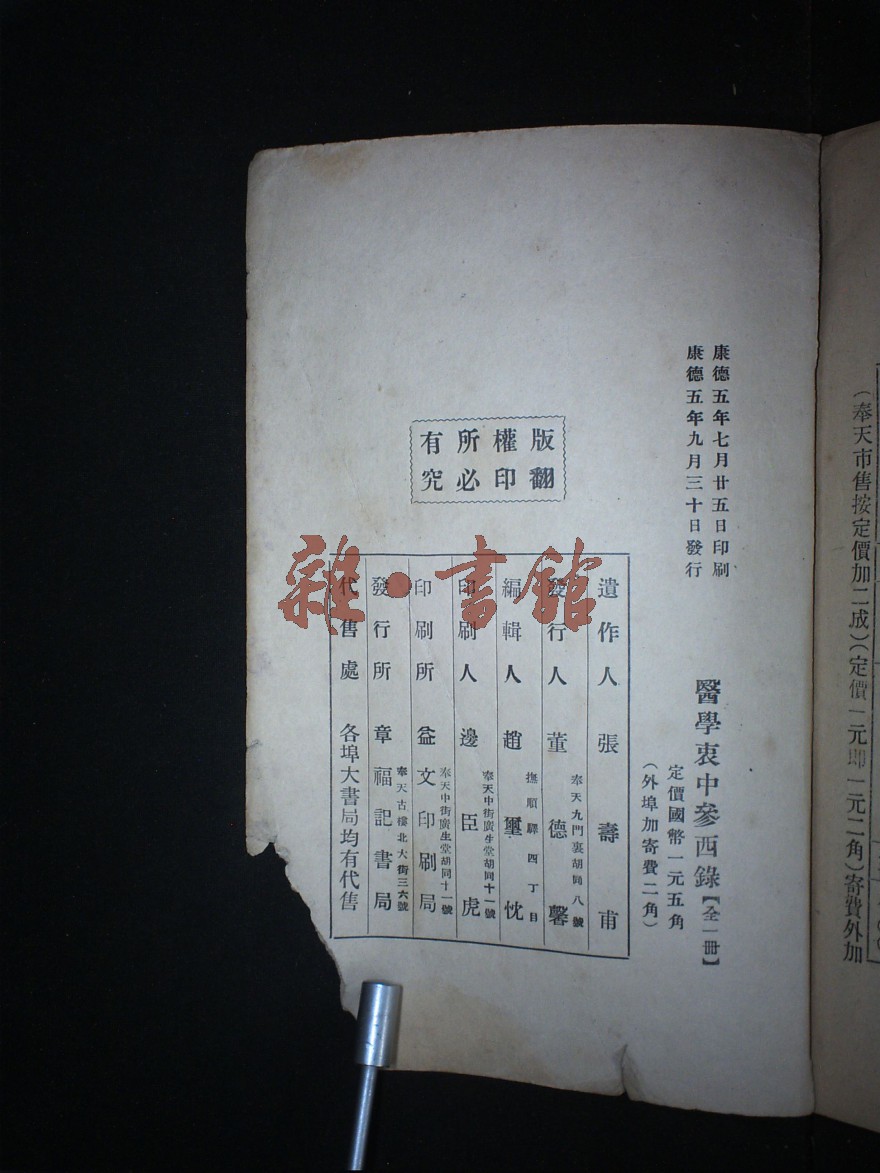 （奉天市售按定價加二成）（定價一元即一元二角）寄費外加
康德五年七月廿五日印刷
康德五年九月三十日發行
醫學衷中參西錄【全一冊】
定價國幣一元五角
（外埠加寄費二角）
版權所有
翻印必究
遺作人 張壽甫
發行人 董德馨 奉天九門裏胡同八號
編輯人 趙璽忱 撫順驛四丁目
印刷人 邊臣虎 奉天中街廣生堂胡同十一號
印刷所 益文印刷局 奉天中街廣生堂胡同十一號
發行所 章福記書局 奉天古樓北大街三六號
代售處 各埠大書局均有代售
雜·書館